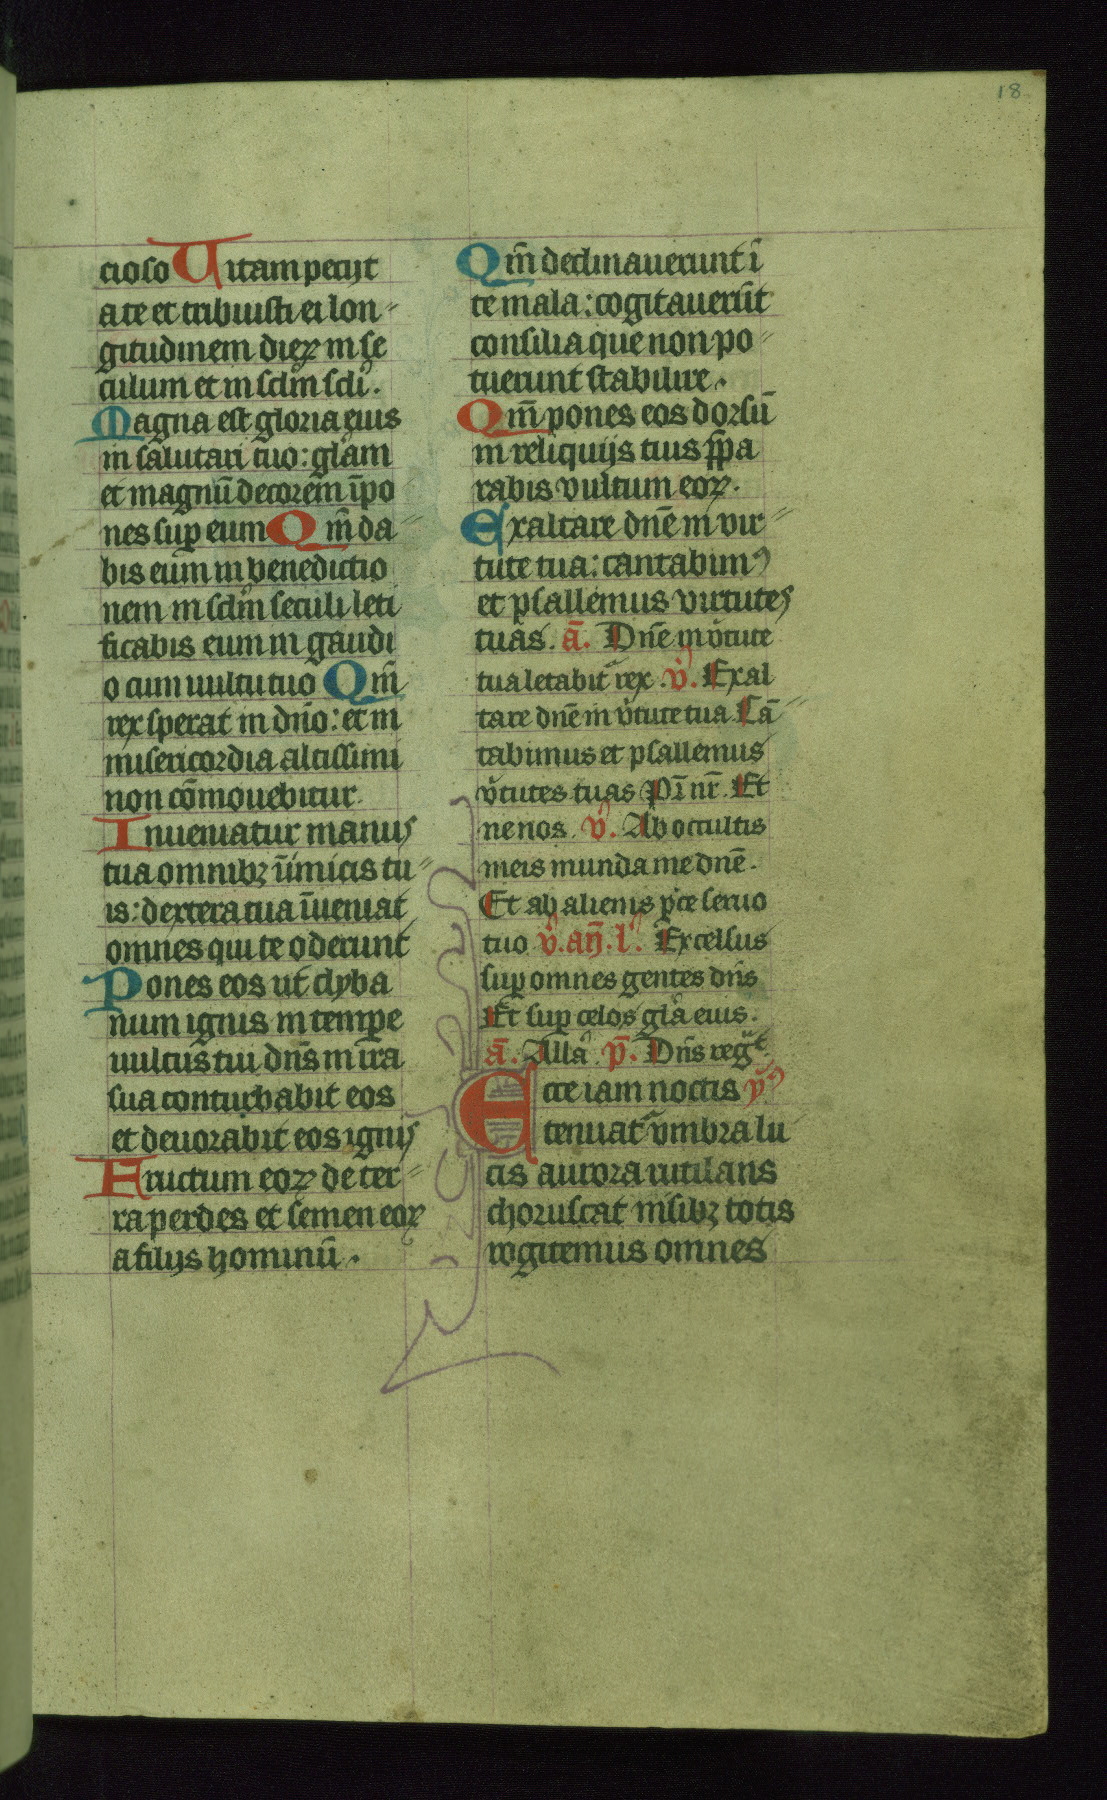 18
cioso Uitam pecijt
a te et tribuisti ei lon-
gitudinem dieꝝ in se
culum et in sclm̄ scli.
Magna est gloria eius
in salutari tuo: gl'am
et magnū decorem īpo
nes suꝑ eum Qm̄ da
bis eum in benedictio
nem in sclm̄ seculi leti
ficabis eum in gaudi
o cum uultu tuo Qm̄
rex sperat in dn̄o: et in
misericordia altissimi
non cōmouebitur.
Inueniatur manus
tua omnibꝫ inimicis tu-
is: dextera tua īueniat
omnes qui te oderunt
Pones eos ut clyba
num ignis in tempore
uultus tui dn̄s in ira
sua conturbabit eos
et deuorabit eos ignis
Fructum eoꝝ de ter-
ra perdes et semen eoꝝ
a filijs hominū.
Qm̄ declinauerunt ī
te mala: cogitauerūt
consilia que non po-
tuerunt stabilire.
Qm̄ pones eos dorsū
in reliquijs tuis p̄pa
rabis vultum eoꝝ.
Exaltare dn̄e in vir-
tute tua: cantabimꝰ
et psallemus virtutes
tuas. ā. Dn̄e in v̾tute
tua letabit᷑ rex. v̾. Exal
tare dn̄e in v̾tute tua Cā
tabimus et psallemus
v̾tutes tuas Pr̄ nr̄. Et
ne nos. v̾. Ab occultis
meis munda me dn̄e.
Et ab alienis p̾ce seruo
tuo v̾. an̄. l'. Excelsus
suꝑ omnes gentes dn̄s
Et suꝑ celos gl'a eius.
ā. All'a p̄. Dn̄s reg᷑t
Ecce iam noctis ym̾
tenuat᷑ vmbra lu
cis aurora rutilans
choruscat nisibꝫ totis
rogitemus omnes